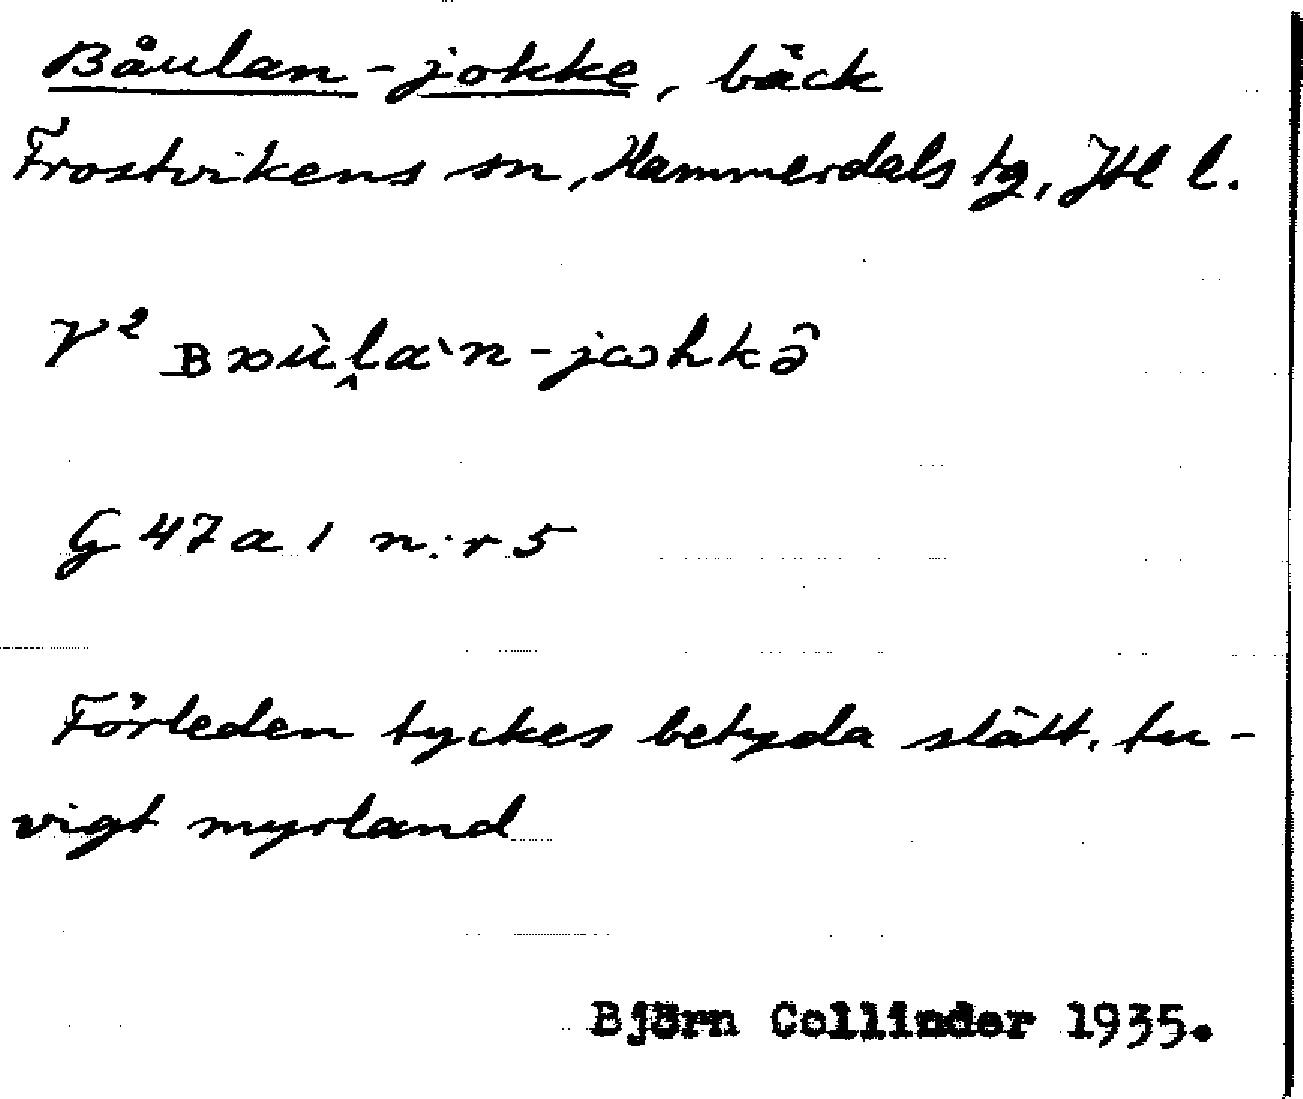 Båulan-jokke, bäck
Frostvikens sn, Hammerdals tg, Jtl l.
V² Bɒùl̬a`n-jɷhkə̂
G 47 a 1 n:r 5
Förleden tyckes betyda slätt, tu-
vigt myrland
Björn Collinder 1935.